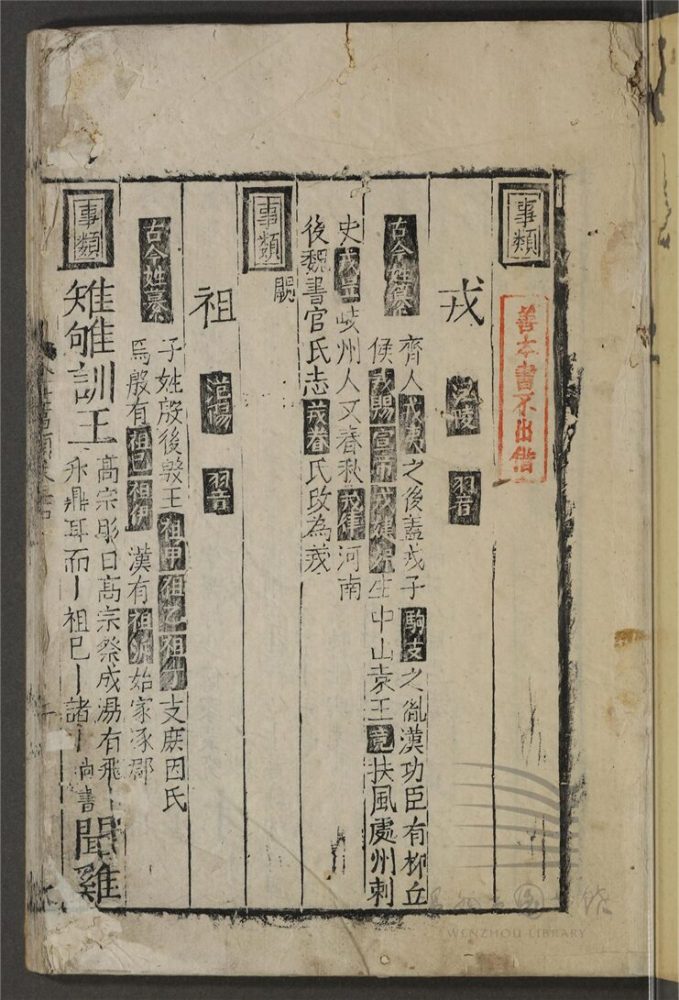 事類
善本書不出借
戎
江陵 羽音
古今姓纂
齊人戎夷之後蓋戎子駒支之胤漢功臣有柳丘
侯戎賜宣帝戎婕妤生中山哀王竟扶風處州刺
史戎昱岐州人又春秋戎律河南
後魏書官氏志戎眷氏改為戎
事類
闕
祖
范陽 羽音
古今姓纂
子姓殷後殷王祖甲祖乙祖丁支庶因氏
焉殷有祖己祖伊漢有祖沠始家涿郡
事類
雉雊訓王
高宗肜日高宗祭成湯有飛
升鼎耳而丨祖己丨諸丨尚書
聞雞
WENZHOU LIBRARY